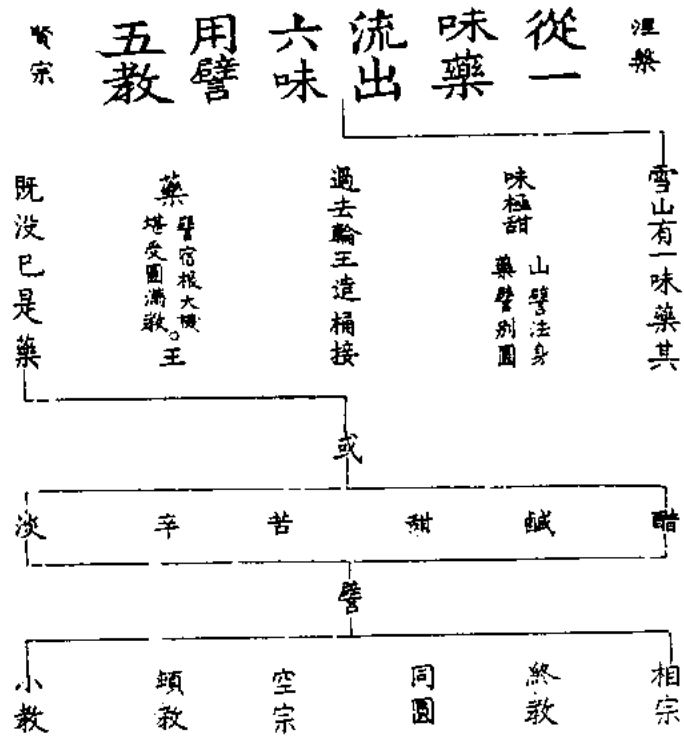 涅槃
從一
味藥
流出
六味
用譬
五教
賢宗
雪山有一味藥其
味極甜
山譬法身
藥譬別圓
過去輪王造桶接
藥
譬宿根大機
堪受圓滿教
。王
既沒已是藥
或
醋
鹹
甜
苦
辛
淡
譬
相宗
終教
同圓
空宗
頓教
小教